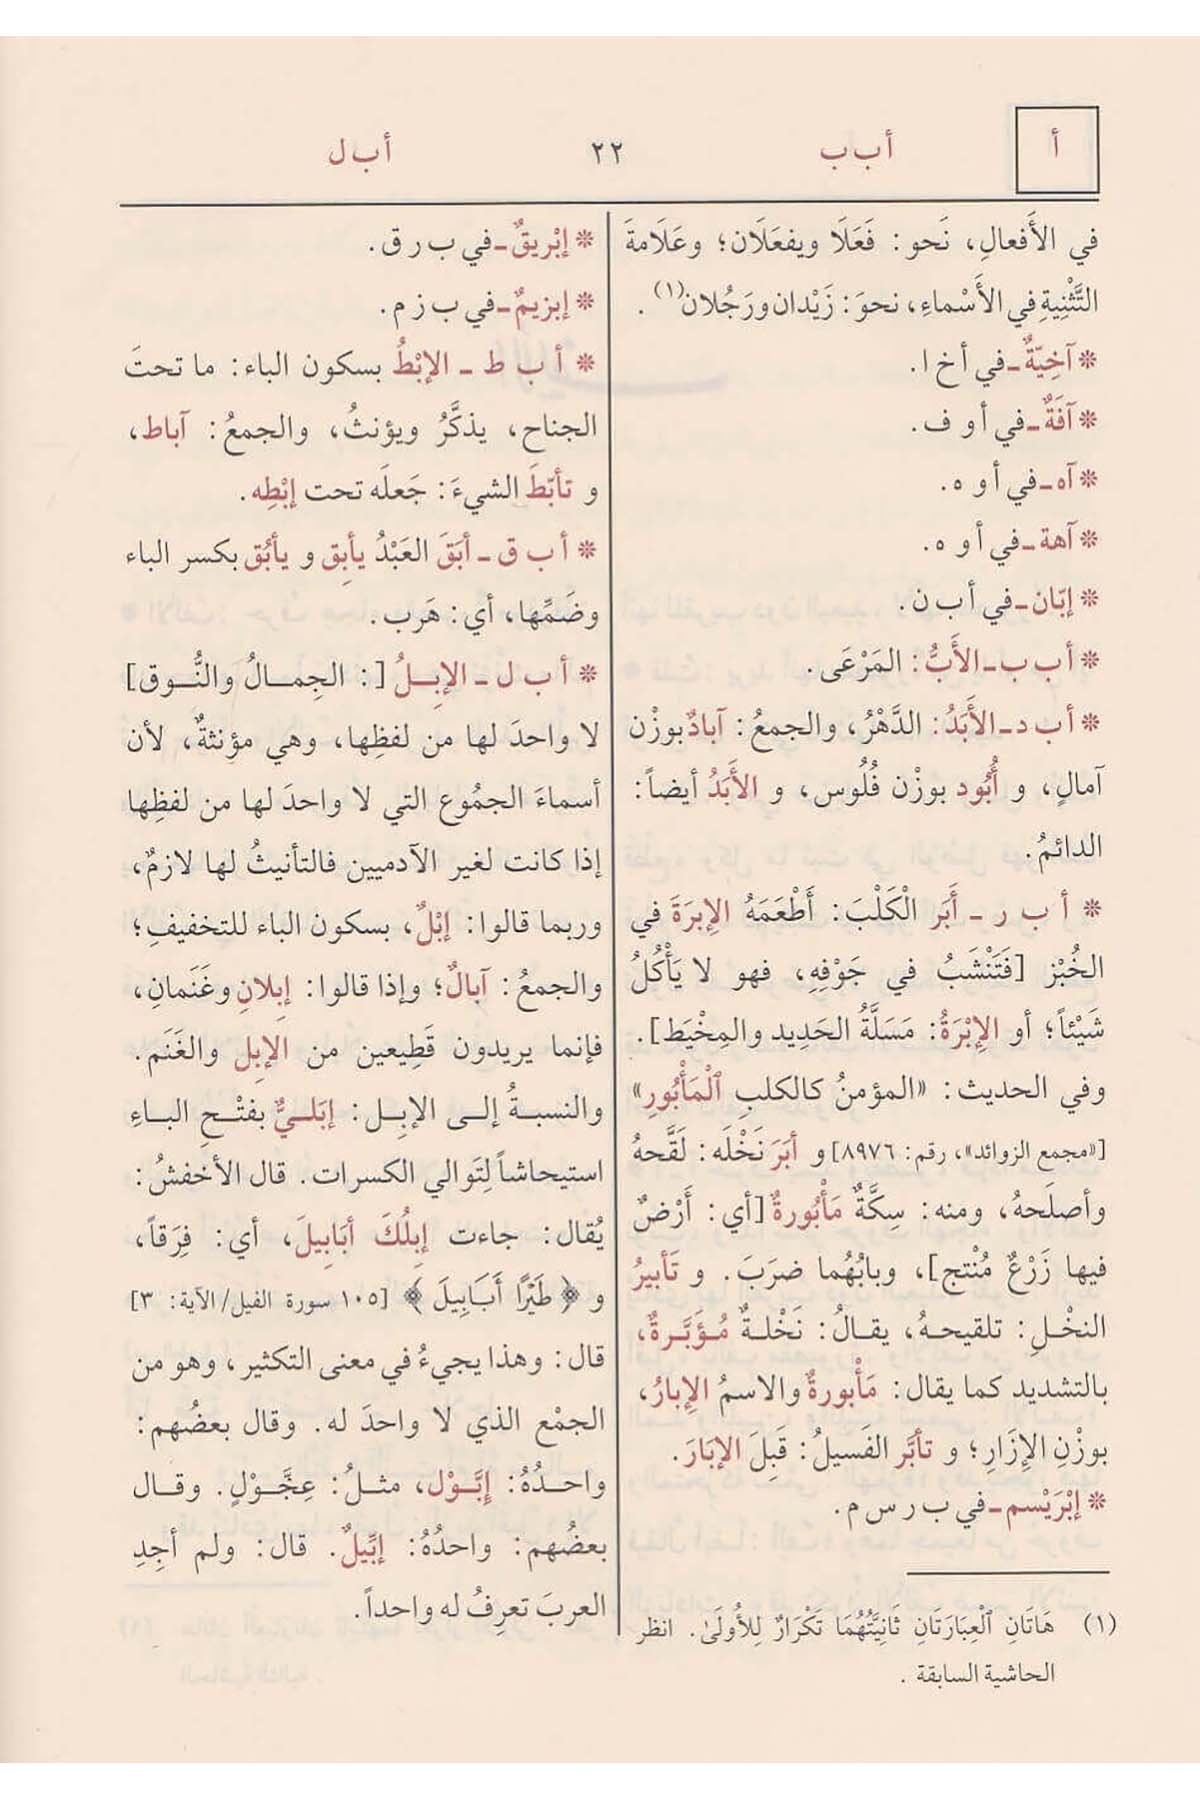 أ
أ ب ب
٢٢
أ ب ل
في الأَفعالِ، نَحو: فَعَلَا ويفعَلَان؛ وعَلَامةَ
التَّثْنِيةِ في الأَسْماءِ، نحوَ: زَيْدان ورَجُلان(١).
* آخِيّةٌ ـ في أ خ ا.
* آفَةٌ ـ في أ و ف.
* آه ـ في أ و ه.
* آهة ـ في أ و ه.
* إبّان ـ في أ ب ن.
* أ ب ب ـ الأَبُّ: المَرْعَى.
* أ ب د ـ الأَبَدُ: الدَّهْرُ، والجمعُ: آبادٌ بوزْن
آمالٍ، و أُبُود بوزْن فُلُوس، و الأَبَدُ أيضاً:
الدائمُ.
* أ ب ر ـ أَبَر الْكَلْبَ: أَطْعَمَهُ الإبرَةَ في
الخُبْز [فَتَنْشَبُ في جَوْفِهِ، فهو لا يَأْكُلُ
شَيْئاً؛ أو الإبْرَةُ: مَسَلَّةُ الحَدِيد والمِخْيَط].
وفي الحديث: «المؤمنُ كالكلبِ ٱلْمَأْبُورِ»
[«مجمع الزوائد»، رقم: ٨٩٧٦] و أبَرَ نَخْلَه: لَقَّحهُ
وأصلَحهُ، ومنه: سِكَّةٌ مَأْبُورةٌ [أي: أَرْضٌ
فيها زَرْعٌ مُنْتج]، وبابُهُما ضرَبَ. و تَأبيرُ
النخْلِ: تلقيحهُ، يقالُ: نَخْلةٌ مُؤَبَّرةٌ،
بالتشديد كما يقال: مَأْبورةٌ والاسمُ الإبارُ،
بوزْنِ الإزَارِ؛ و تأبَّر الفَسيلُ: قَبِلَ الإبَارَ.
* إبْرَيْسم ـ في ب ر س م.
(١) هَاتَانِ ٱلْعِبَارَتَانِ ثَانِيَّتُهُمَا تَكْرَارٌ لِلأُولَىٰ. انظر
الحاشية السابقة.
* إبْريقٌ ـ في ب ر ق.
* إبزيمٌ ـ في ب ز م.
* أ ب ط ـ الإبْطُ بسكون الباء: ما تحتَ
الجناح، يذكَّرُ ويؤنثُ، والجمعُ: آباط،
و تأبّطَ الشيءَ: جَعلَه تحت إبْطِه.
* أ ب ق ـ أبَقَ العَبْدُ يأبِق و يأبُق بكسر الباء
وضَمِّها، أي: هَرب.
* أ ب ل ـ الإبِلُ [: الجِمالُ والنُّوق]
لا واحدَ لها من لفظِها، وهي مؤنثةٌ، لأن
أسماءَ الجمُوع التي لا واحدَ لها من لفظِها
إذا كانت لغير الآدميين فالتأنيثُ لها لازمٌ،
وربما قالوا: إبْلٌ، بسكون الباء للتخفيفِ؛
والجمعُ: آبالٌ؛ وإذا قالوا: إبِلانِ وغَنَمانِ،
فإنما يريدون قَطِيعين من الإبِل والغَنَم.
والنسبةُ إلى الإبِل: إبَليٌّ بفتْحِ الباءِ
استيحاشاً لِتَوالي الكسرات. قال الأخفشُ:
يُقال: جاءت إبِلُكَ أبَابِيلَ، أي: فِرَقاً،
و ﴿طَيْرًا أَبَابِيلَ﴾ [١٠٥ سورة الفيل/ الآية: ٣]
قال: وهذا يجيءُ في معنى التكثير، وهو من
الجمْع الذي لا واحدَ له. وقال بعضُهم:
واحدُهُ: إبَّوْل، مثلُ: عِجَّوْلٍ. وقال
بعضُهم: واحدُهُ: إبِّيلٌ. قال: ولم أجِدِ
العربَ تعرِفُ له واحداً.